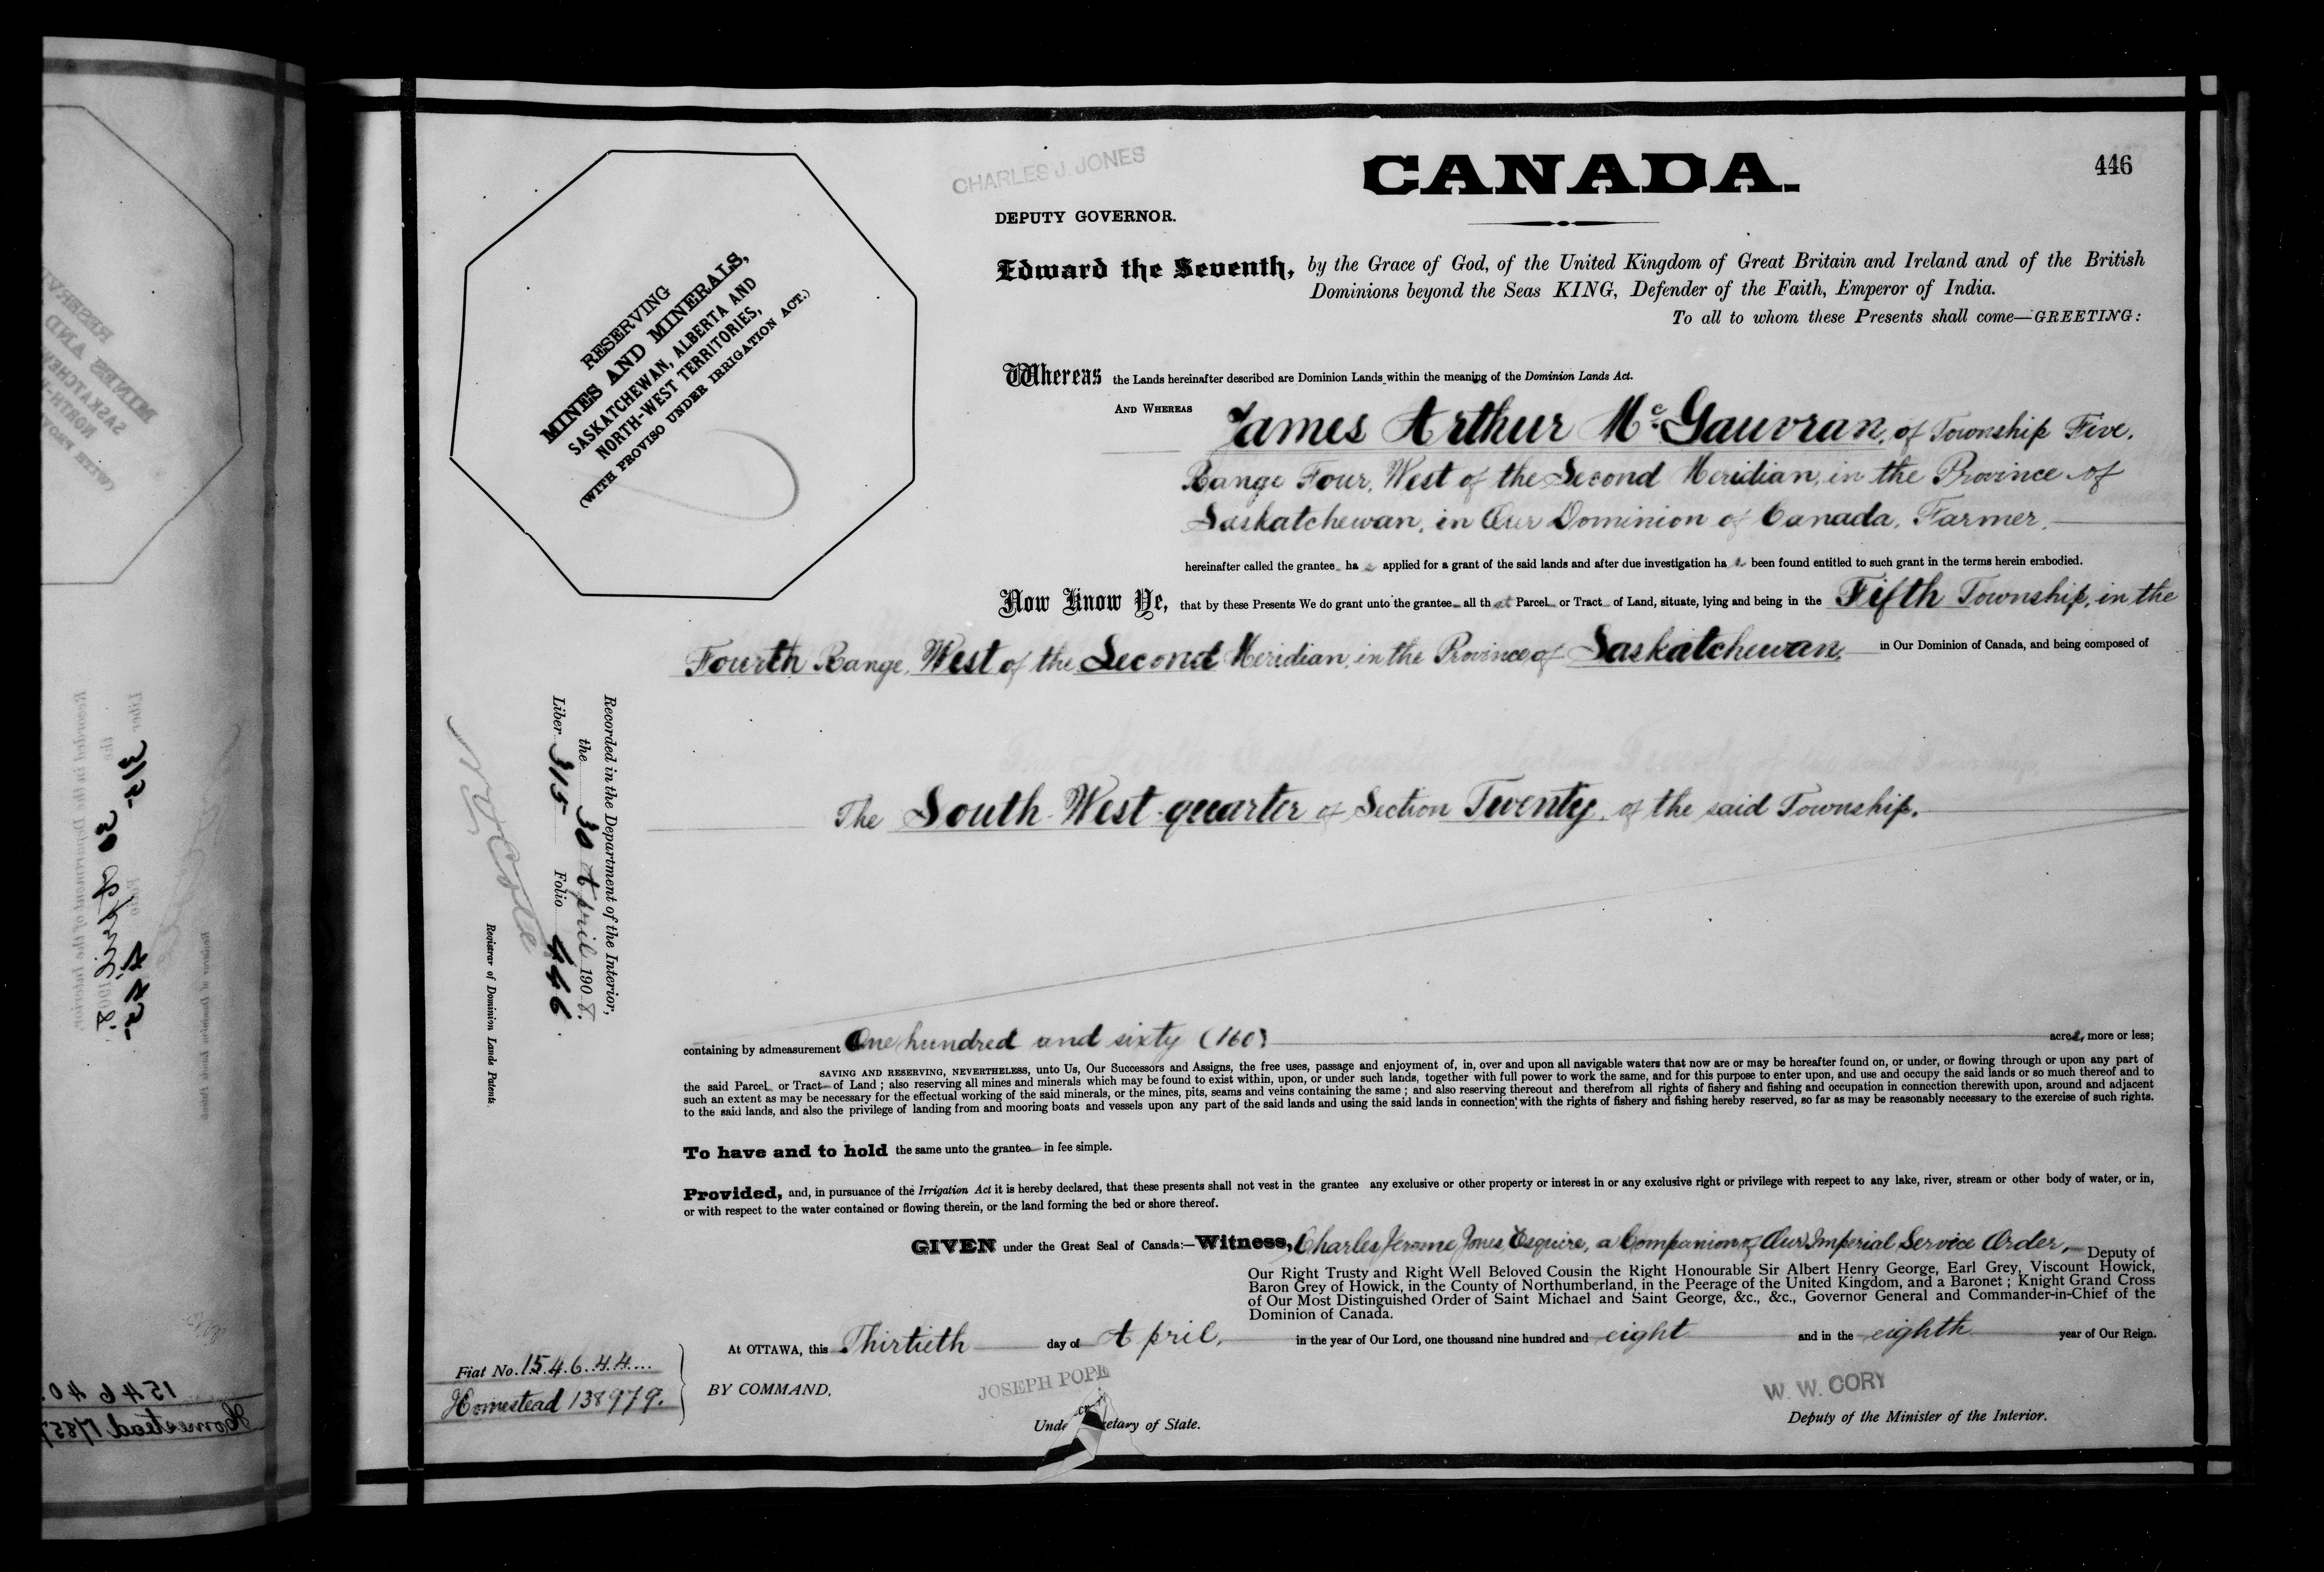 446
CANADA.
CHARLES J. JONES
DEPUTY GOVERNOR.
RESERVING
MINES AND MINERALS,
SASKATCHEWAN, ALBERTA AND
NORTH-WEST TERRITORIES,
(WITH PROVISO UNDER IRRIGATION ACT.)
Edward the Seventh, by the Grace of God, of the United Kingdom of Great Britain and Ireland and of the British
Dominions beyond the Seas KING, Defender of the Faith, Emperor of India.
To all to whom these Presents shall come—GREETING:
Whereas the Lands hereinafter described are Dominion Lands within the meaning of the Dominion Lands Act.
AND WHEREAS James Arthur McGauvran, of Township Five,
Range Four, West of the Second Meridian, in the Province of
Saskatchewan, in Our Dominion of Canada, Farmer,
hereinafter called the grantee ha s applied for a grant of the said lands and after due investigation ha s been found entitled to such grant in the terms herein embodied.
Now Know Ye, that by these Presents We do grant unto the grantee all that Parcel or Tract of Land, situate, lying and being in the Fifth Township, in the
Fourth Range, West of the Second Meridian, in the Province of Saskatchewan, in Our Dominion of Canada, and being composed of
The South West quarter of Section Twenty, of the said Township.
Recorded in the Department of the Interior,
the 30 April 1908.
Liber 315 Folio 446.
Registrar of Dominion Lands Patents.
containing by admeasurement One hundred and sixty (160) acres, more or less;
SAVING AND RESERVING, NEVERTHELESS, unto Us, Our Successors and Assigns, the free uses, passage and enjoyment of, in, over and upon all navigable waters that now are or may be hereafter found on, or under, or flowing through or upon any part of
the said Parcel or Tract of Land; also reserving all mines and minerals which may be found to exist within, upon, or under such lands, together with full power to work the same, and for this purpose to enter upon, and use and occupy the said lands or so much thereof and to
such an extent as may be necessary for the effectual working of the said minerals, or the mines, pits, seams and veins containing the same; and also reserving thereout and therefrom all rights of fishery and fishing and occupation in connection therewith upon, around and adjacent
to the said lands, and also the privilege of landing from and mooring boats and vessels upon any part of the said lands and using the said lands in connection with the rights of fishery and fishing hereby reserved, so far as may be reasonably necessary to the exercise of such rights.
To have and to hold the same unto the grantee in fee simple.
Provided, and, in pursuance of the Irrigation Act it is hereby declared, that these presents shall not vest in the grantee any exclusive or other property or interest in or any exclusive right or privilege with respect to any lake, river, stream or other body of water, or in,
or with respect to the water contained or flowing therein, or the land forming the bed or shore thereof.
GIVEN under the Great Seal of Canada:—Witness, Charles Jerome Jones, Esquire, a Companion of Our Imperial Service Order, Deputy of
Our Right Trusty and Right Well Beloved Cousin the Right Honourable Sir Albert Henry George, Earl Grey, Viscount Howick,
Baron Grey of Howick, in the County of Northumberland, in the Peerage of the United Kingdom, and a Baronet; Knight Grand Cross
of Our Most Distinguished Order of Saint Michael and Saint George, &c., &c., Governor General and Commander-in-Chief of the
Dominion of Canada.
At OTTAWA, this Thirtieth day of April, in the year of Our Lord, one thousand nine hundred and eight and in the eighth year of Our Reign.
Fiat No. 154644
Homestead 138979.
BY COMMAND,
JOSEPH POPE
Unde etary of State.
W. W. CORY
Deputy of the Minister of the Interior.